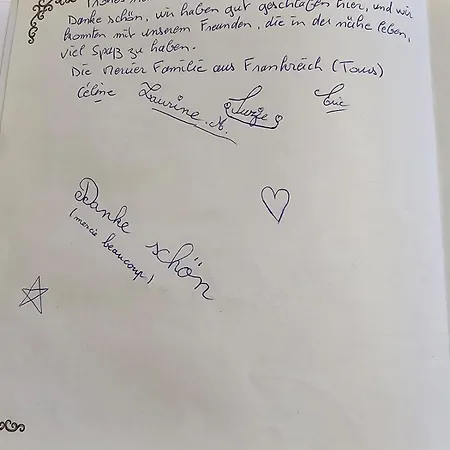 Danke schön, wir haben gut geschlafen hier, und wir
konnten mit unserem Freunden, die in der nähe leben,
viel Spaß zu haben.
Die Familie aus Frankreich (Tours)
Céline Laurine.A. Luzie Eric
Danke schön
(merci beaucoup)